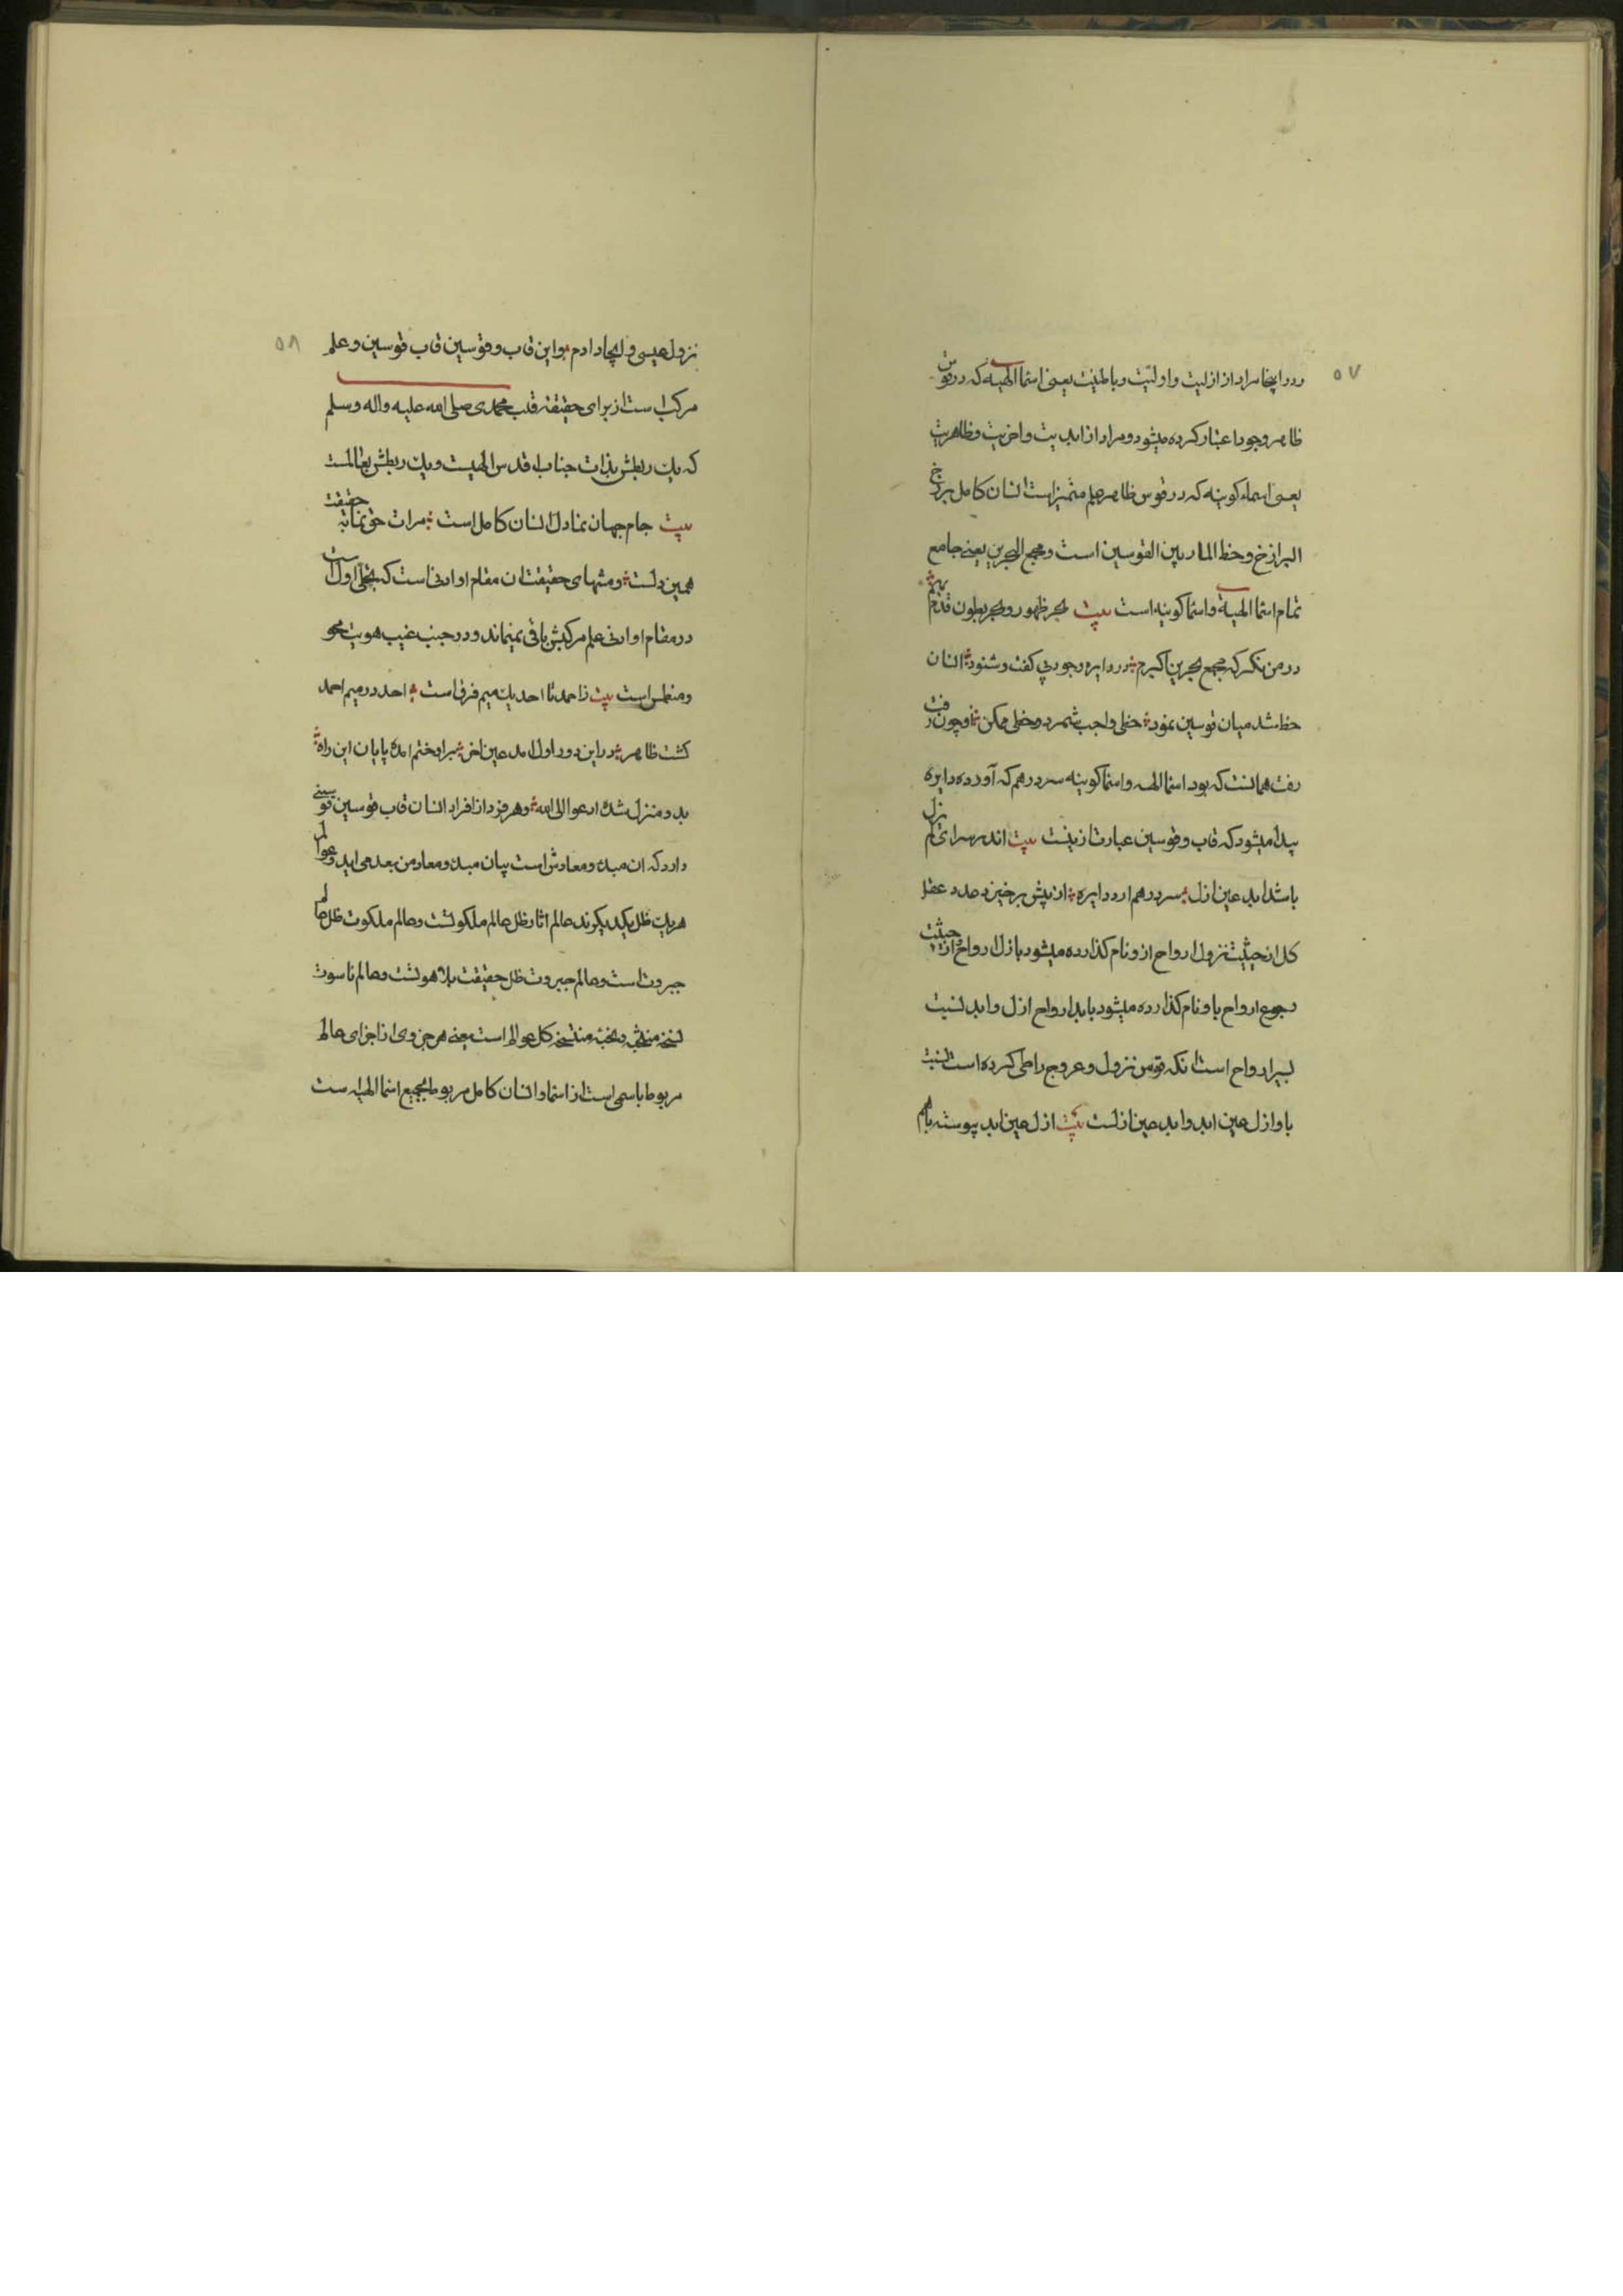 ۵۷
ودر اینجا مراد از ازلیت واولیت وباطنیت یعنی اسما الهیه که در قوس
ظاهر وجود اعتبار کرده میشود ومراد از ابدیت واخریت وظاهریت
یعنی اسماء کونیه که در قوس ظاهر علم متمیز است انسان کامل برزخ
البرازخ وخط المار بین القوسین است ومجمع البحرین یعنی جامع
تمام اسما الهیه واسما کونیه است بیت بحر ظهور وبحر بطون قدم بهم
در من نکر که مجمع بحرین اکبرم در دایره وجود بی کفت وشنود انسان
خط شد میان قوسین نمود خطی واجب شمرد وخطی ممکن وچون رفت
رفت همانست که بود اسما الهیه واسما کونیه سر درهم که آورده دایره
پیدا میشود که قاب وقوسین عبارت ازینست بیت اندر سرای لم یزل
باشد ابد عین ازل سر درهم ارد دایره از پیش برخیزد عدد عقل
کل از حیثیت نزول ارواح ازو نام کذارده میشود بازل ارواح از حیثیت
رجوع ارواح باو نام کذارده میشود بابد ارواح ازل وابد نسبت
بسیر ارواح است انکه قوس نزول وعروج را طی کرده است نسبت
باو ازل عین ابد وابد عین ازلست بیت ازل عین ابد پیوسته باهم
۵۸
نزول عیسی وایجاد ادم واین قاب وقوسین قاب قوسین وعلم
مرکب است از برای حقیقة قلب محمدی صلی الله علیه واله وسلم
که یک ربطش بذات جناب اقدس الهیست ویک ربطش بعالمست
بیت جام جهان نما دل انسان کامل است مرات حق نما بحقیقت
همین دلست ومنتهای حقیقت ان مقام او ادنی است که تجلی اول است
در مقام او ادنی علم مرکبش باقی نمیماند ودر جنب غیب هویت محو
ومنطمس است بیت ز احمد تا احد یک میم فرق است احد در میم احمد
کشت ظاهر در این دور اول امد عین اخر براو ختم امده پایان این راه
بدو منزل شده ادعوا الی الله وهر فرد از افراد انسان قاب قوسین قوسینی
دارد که ان مبدء ومعادش است بیان مبدء ومعاد من بعد می اید وعوالم
هر یک ظل یکدیکرند عالم اثار ظل عالم ملکوتست وعالم ملکوت ظل عالم
جبروت است وعالم جبروت ظل حقیقت بلاهوتست وعالم ناسوت
نسخه منتخبه ونخبه منتسخه کل عوالم است یعنی هر جزوی از اجزای عالم
مربوط باسمی است از اسما وانسان کامل مربوط بجمیع اسما الهیه ست